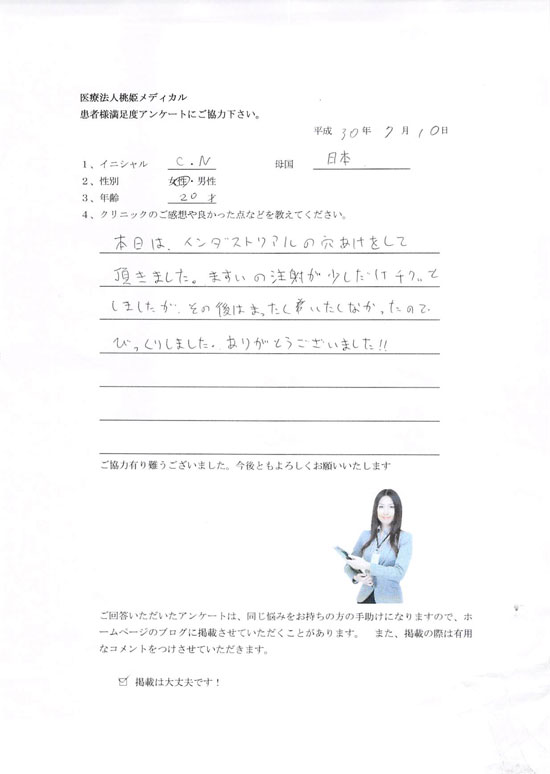 医療法人桃姫メディカル
患者様満足度アンケートにご協力下さい。
平成 30 年 7 月 10 日
1、イニシャル C.N 母国 日本
2、性別 女性・男性
3、年齢 20 才
4、クリニックのご感想や良かった点などを教えてください。
本日は、インダストリアルの穴あけをして
頂きました。ますいの注射が少しだけチクッと
しましたが、その後はまったくいたくなかったので
びっくりしました。ありがとうございました!!
ご協力有り難うございました。今後ともよろしくお願いいたします
ご回答いただいたアンケートは、同じ悩みをお持ちの方の手助けになりますので、ホ
ームページのブログに掲載させていただくことがあります。 また、掲載の際は有用
なコメントをつけさせていただきます。
☑ 掲載は大丈夫です!